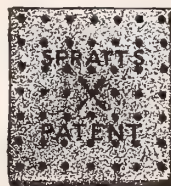 SPRATTS
X
PATENT